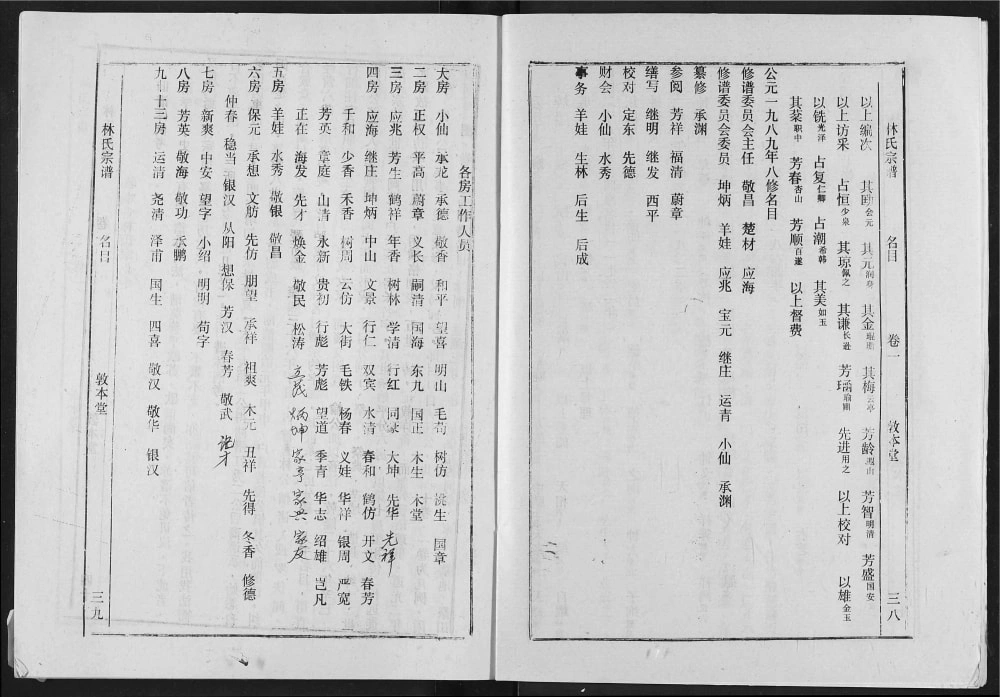 林氏宗谱 名目 卷一 敦本堂 三八
以上编次 其 公元 其元 其金 其梅云亭 芳龄 芳智明清 芳盛国安
以上访采 占恒少泉 其琼佩之 其谦长逊 芳 先进用之 以上校对 以雄金玉
以铣光泽 占复仁卿 占潮希韩 其美如玉
其菜职中 芳春杏山 芳顺百遂 以上督费
公元一九八九年八修名目
修谱委员会主任 敬昌 楚材 应海
修谱委员会委员 坤炳 羊娃 应兆 宝元 继庄 运青 小仙 承渊
纂修 承渊
参阅 芳祥 福清 蔚章
缮写 继明 继发 西平
校对 定东 先德
财会 小仙 水秀
事务 羊娃 生林 后生 后成
各房工作人员
大房 小仙 承龙 承德 敬香 和平 望喜 明山 毛苟 树仿 洮生 国章
二房 正权 平高 蔚章 义长 嗣清 国海 东九 国正 木生 木堂
三房 应兆 芳生 鹤祥 年香 树林 学清 行红 同家 大坤 先华 光祥
四房 应海 继庄 坤炳 中山 文景 行仁 双宾 水清 春和 鹤仿 开文 春芳
千和 少香 禾香 树周 云仿 大街 毛铁 杨春 义娃 华祥 银周 严宽
芳英 章庭 山清 永新 贵初 行彪 芳彪 望道 季青 华志 绍雄 岂凡
正在 海发 先才 焕金 敬民 松涛 立茂 炳坤 家亨 家兴 家友
五房 羊娃 水秀 敬银 敬昌
六房 保元 承想 文肪 先仿 朋望 承祥 祖爽 木元 丑祥 先得 冬香 修德
仲春 稳当 银汉 从阳 想保 芳汉 春芳 敬武 才
七房 新爽 中安 望字 小绍 明明 苟字
八房 芳英 敬海 敬功 承鹏
九十三房 运清 尧清 泽甫 国生 四喜 敬汉 敬华 银汉
林氏宗谱 卷 名目 敦本堂 三九